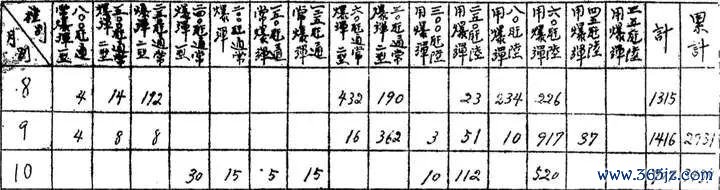 種別
月別
八〇〇瓩通常爆彈一型
五〇〇瓩通常爆彈二型
二五〇瓩通常爆彈二型
二〇〇瓩通常爆彈
一五〇瓩通常爆彈
一五瓩通常爆彈
六〇瓩通常爆彈二型
三〇瓩通常爆彈二型
三〇〇瓩陸用爆彈
二五〇瓩陸用爆彈
八〇瓩陸用爆彈
六〇瓩陸用爆彈
四五瓩陸用爆彈
計
累計
8 4 14 192 432 190 23 234 226 1315
9 4 8 8 16 362 3 51 10 917 37 1416 2731
10 30 15 5 15 10 112 520
www.365jz.com